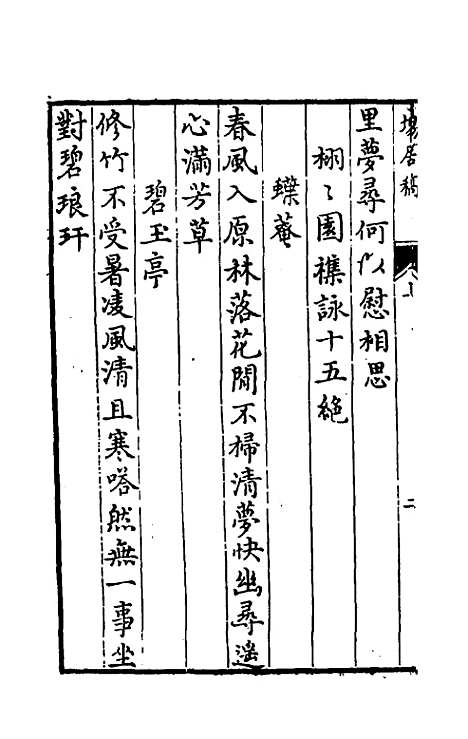 里夢尋何以慰相思
栩〻園襍詠十五絶
蝶菴
春風入原林落花閒不掃清夢快幽尋遥
心滿芳草
碧玉亭
修竹不受暑凌風清且寒嗒然無一事坐
對碧琅玕
居稿
二